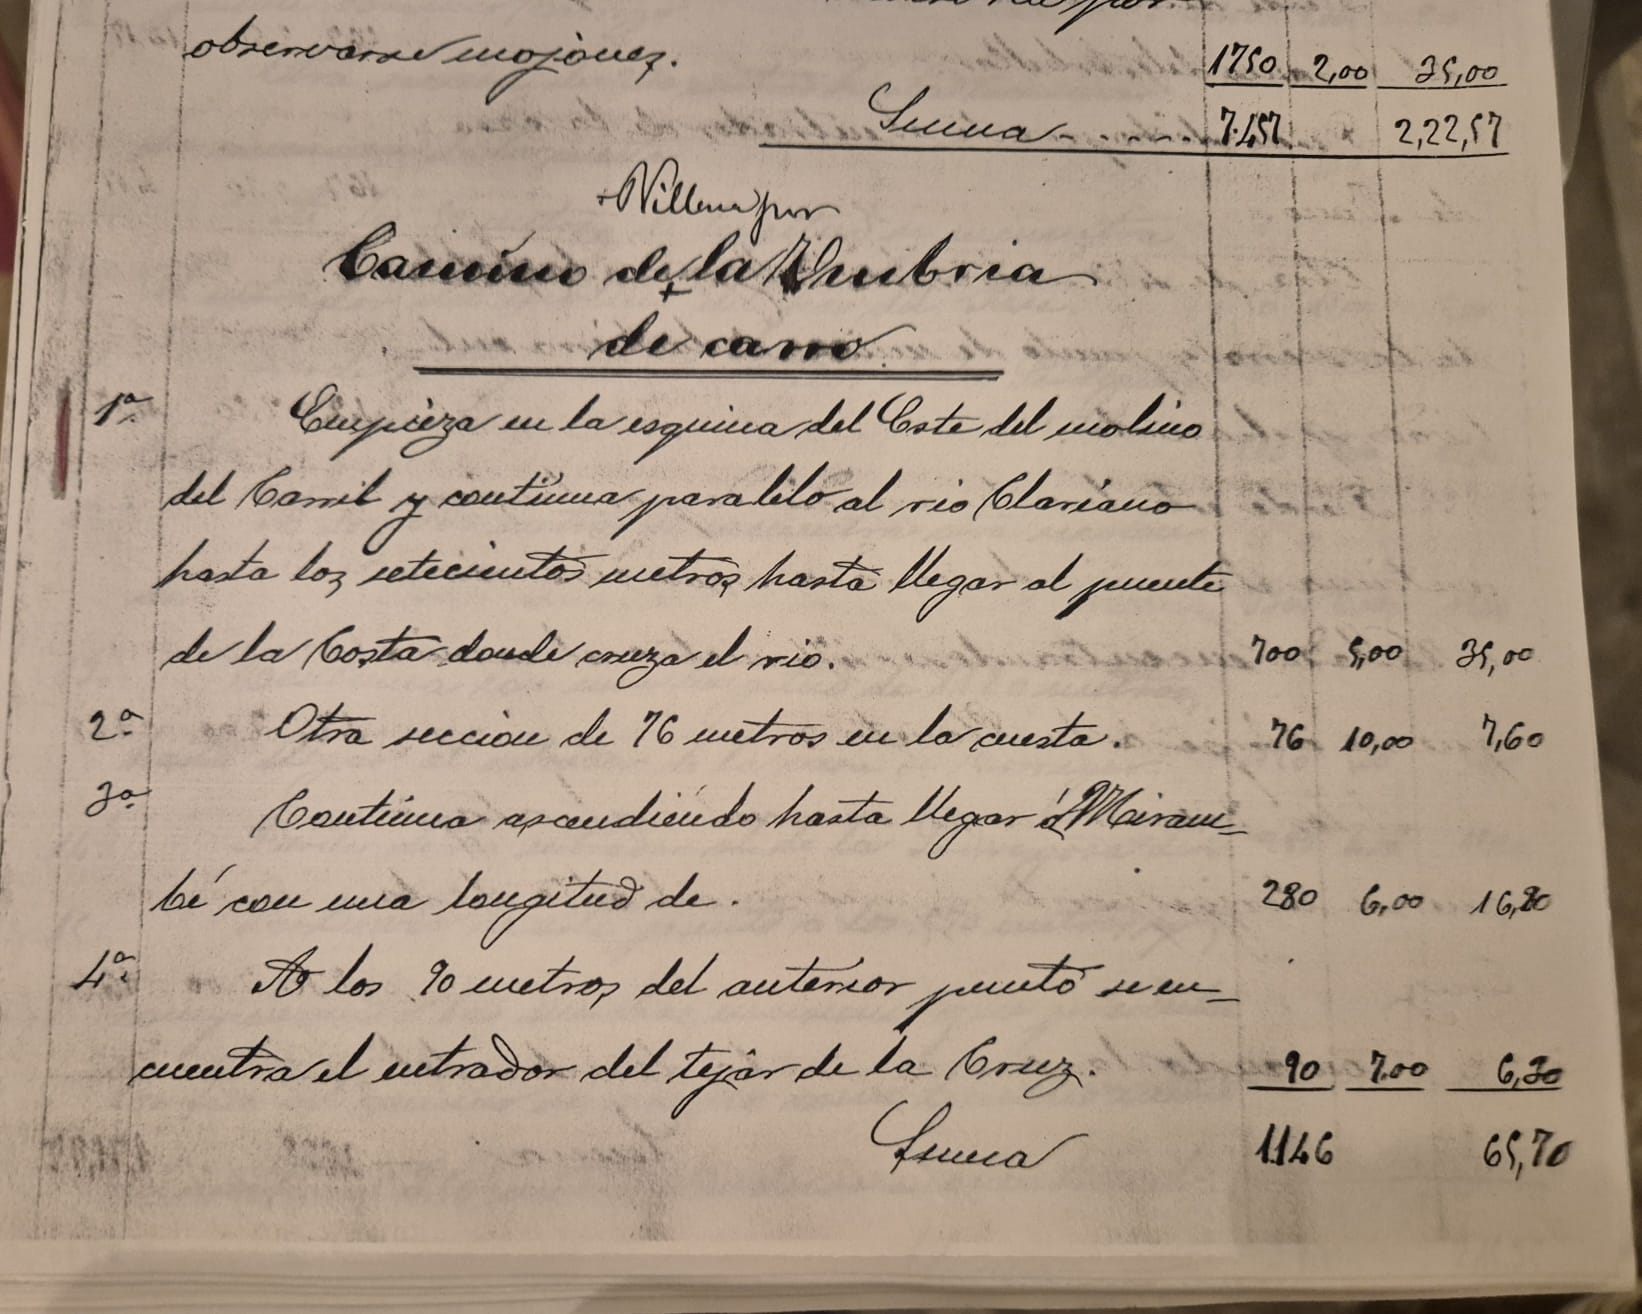 observarse mojones. 1750 2,00 35,00
Suma 7.457 2,22,57
+Villena por
Camino de la Umbria
+
de carro
1ª Empieza en la esquina del Este del molino
del Carril y continua paralelo al rio Clariano
hasta los setecientos metros hasta llegar al puente
de la Costa donde cruza el rio. 700 5,00 35,00
2ª Otra seccion de 76 metros en la cuesta. 76 10,00 7,60
3ª Continua ascendiendo hasta llegar á Miram=
bé con una longitud de. 280 6,00 16,80
4ª A los 90 metros del anterior punto se en=
cuentra el entrador del tejar de la Cruz. 90 7.00 6,30
Suma 1.146 65,70